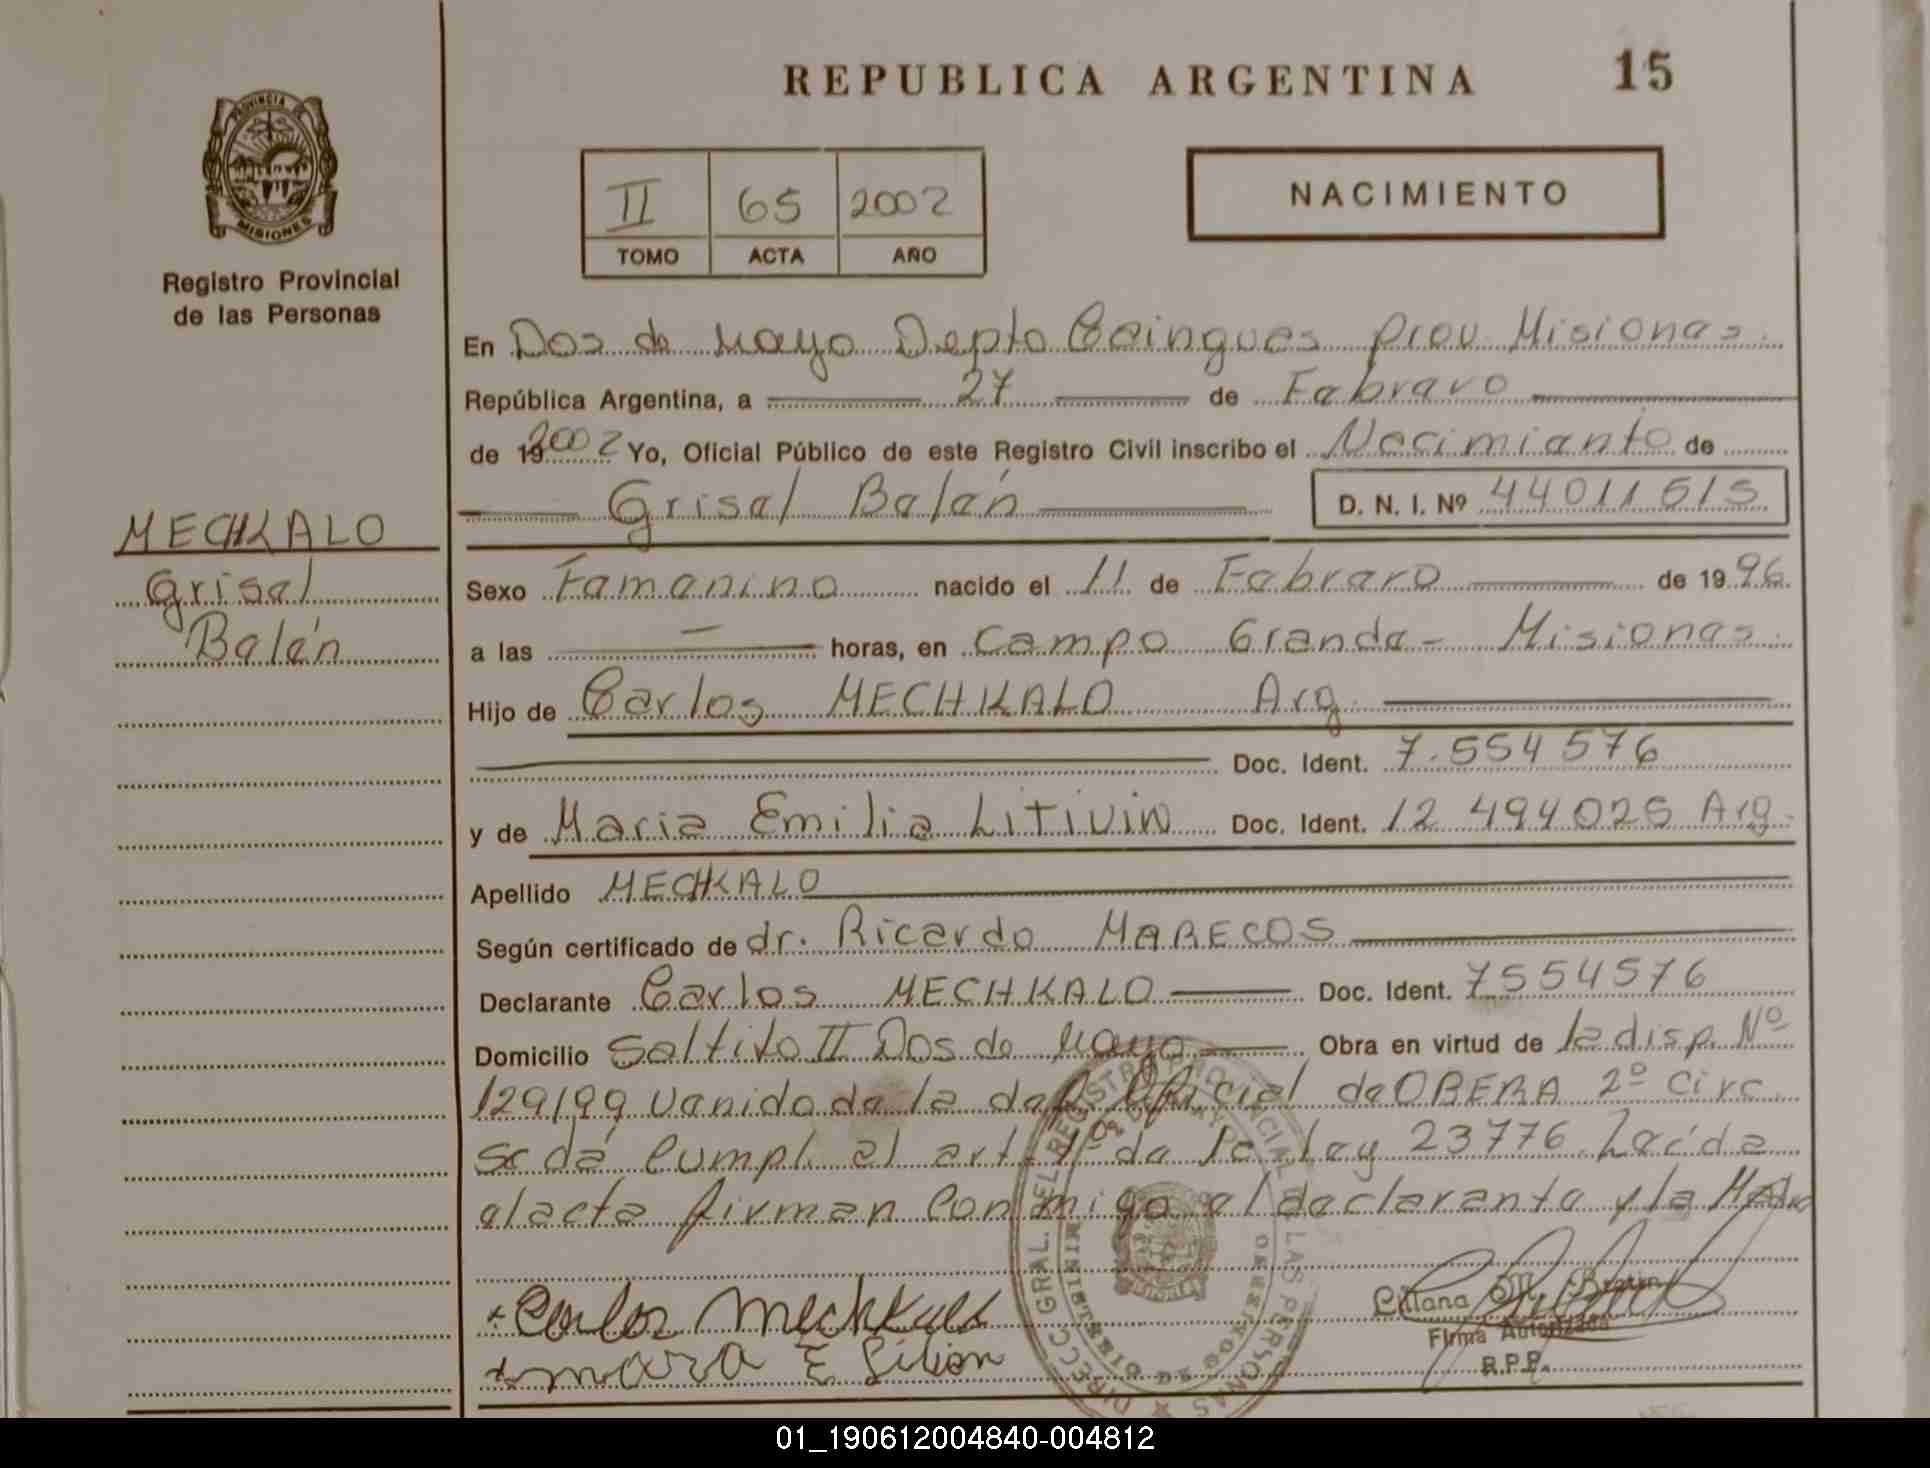 REPUBLICA ARGENTINA 15
PROVINCIA
MISIONES
Registro Provincial
de las Personas
II 65 2002
TOMO ACTA AÑO
NACIMIENTO
En Dos de Mayo Depto Cainguas Prov. Misiones.
República Argentina, a 27 de Febrero
de 19 2002 Yo, Oficial Público de este Registro Civil inscribo el Nacimiento de
Grisel Belén D. N. I. Nº 44011515
MECHKALO
Grisel
Belén
Sexo Femenino nacido el 11 de Febrero de 1996.
a las — horas, en Campo Grande - Misiones.
Hijo de Carlos MECHKALO Arg.
Doc. Ident. 7.554 576
y de Maria Emilia LiTiviN Doc. Ident. 12 494025 Arg.
Apellido MECHKALO
Según certificado de dr. Ricardo MARECOS
Declarante Carlos MECHKALO Doc. Ident. 7554576
Domicilio Saltito II Dos de Mayo Obra en virtud de la disp. Nº
129/99 venido de la del. Oficial de OBERA 2º circ.
se dá cumpl. al art. 1º de la ley 23776. Leída
el acta firman conmigo el declarante y la Madre
Carlos Mechkalo
Liliana
Firma Autorizada
R.P.P.
DIRECC. GRAL. DEL REGISTRO PROVINCIAL DE LAS PERSONAS
01_190612004840-004812